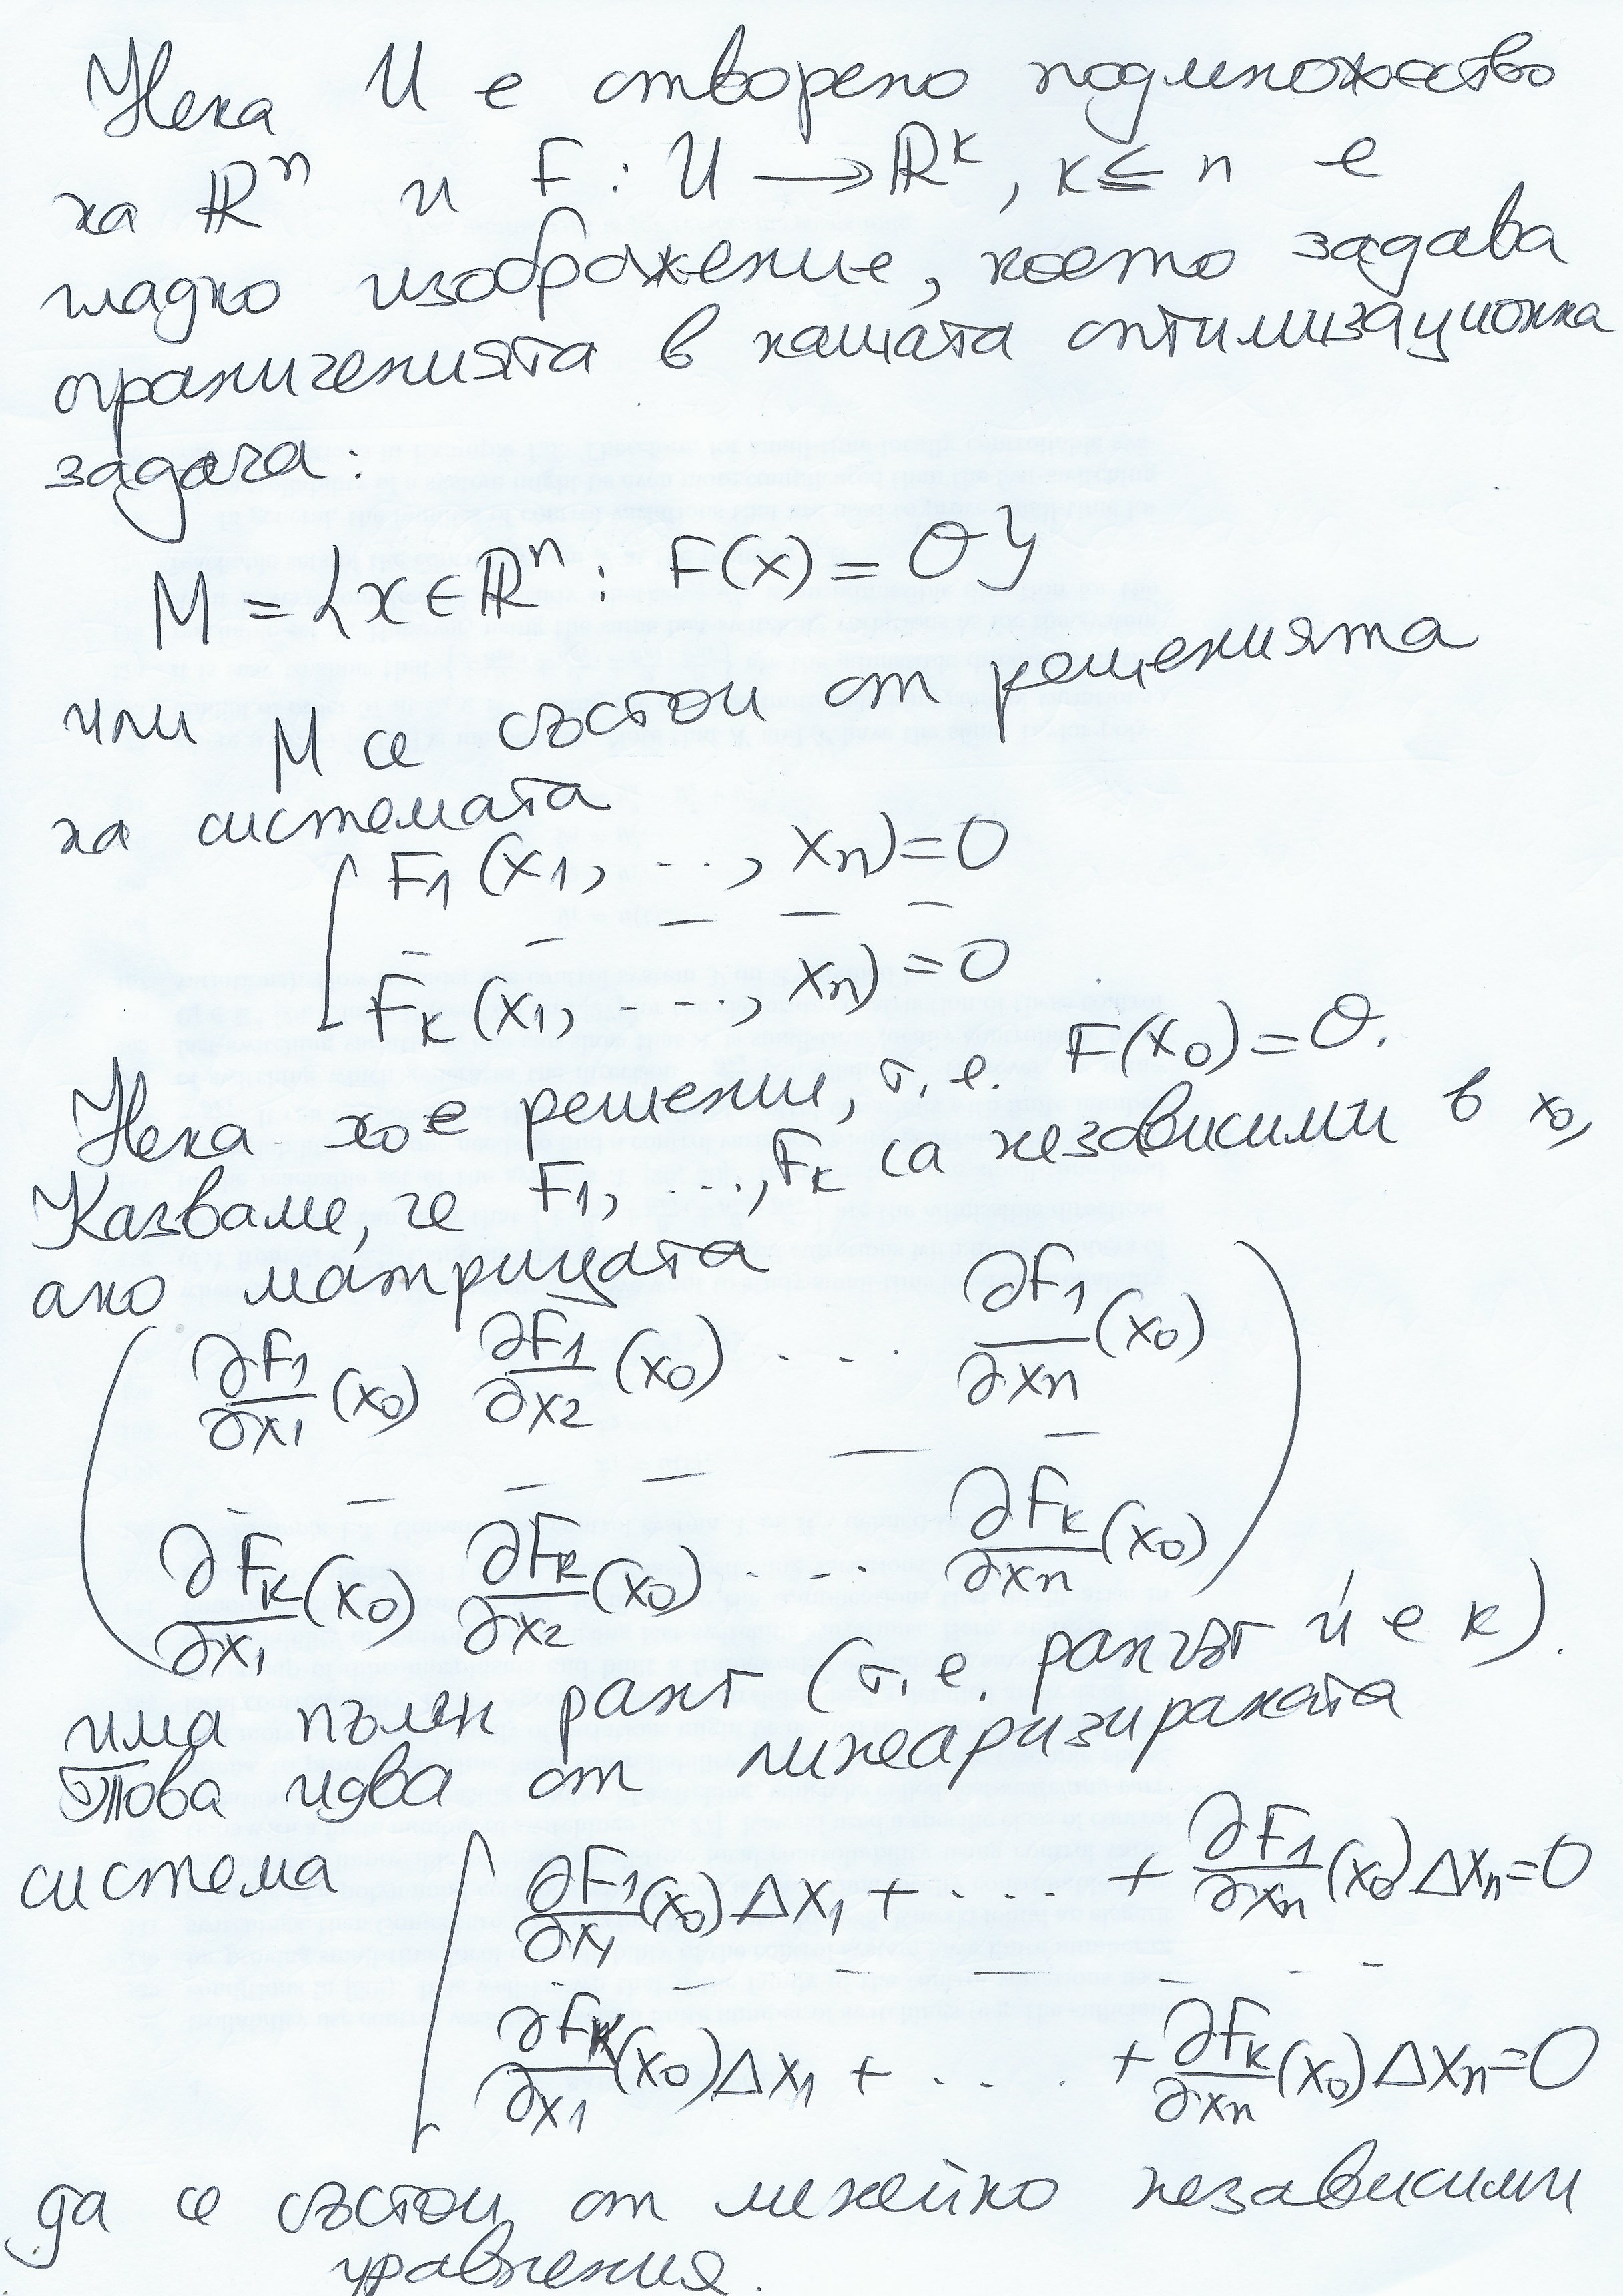 Нека U е отворено подмножество
на ℝⁿ и F : U → ℝᵏ, k ≤ n е
гладко изображение, което задава
ограниченията в нашата оптимизационна
задача:
M = {x ∈ ℝⁿ : F(x) = 0}
или M се състои от решенията
на системата
F₁(x₁, ..., xₙ) = 0
– – – – –
Fₖ(x₁, ..., xₙ) = 0
Нека x₀ е решение, т.е. F(x₀) = 0.
Казваме, че F₁, ..., Fₖ са независими в x₀,
ако матрицата
∂F₁/∂x₁ (x₀) ∂F₁/∂x₂ (x₀) ... ∂F₁/∂xₙ (x₀)
– – – – – –
∂Fₖ/∂x₁ (x₀) ∂Fₖ/∂x₂ (x₀) ... ∂Fₖ/∂xₙ (x₀)
има пълен ранг (т.е. рангът ѝ е k).
Това идва от линеаризираната
система
∂F₁/∂x₁ (x₀) Δx₁ + .... + ∂F₁/∂xₙ (x₀) Δxₙ = 0
– – – – – – –
∂Fₖ/∂x₁ (x₀) Δx₁ + .... + ∂Fₖ/∂xₙ (x₀) Δxₙ = 0
да се състои от линейно независими
уравнения.